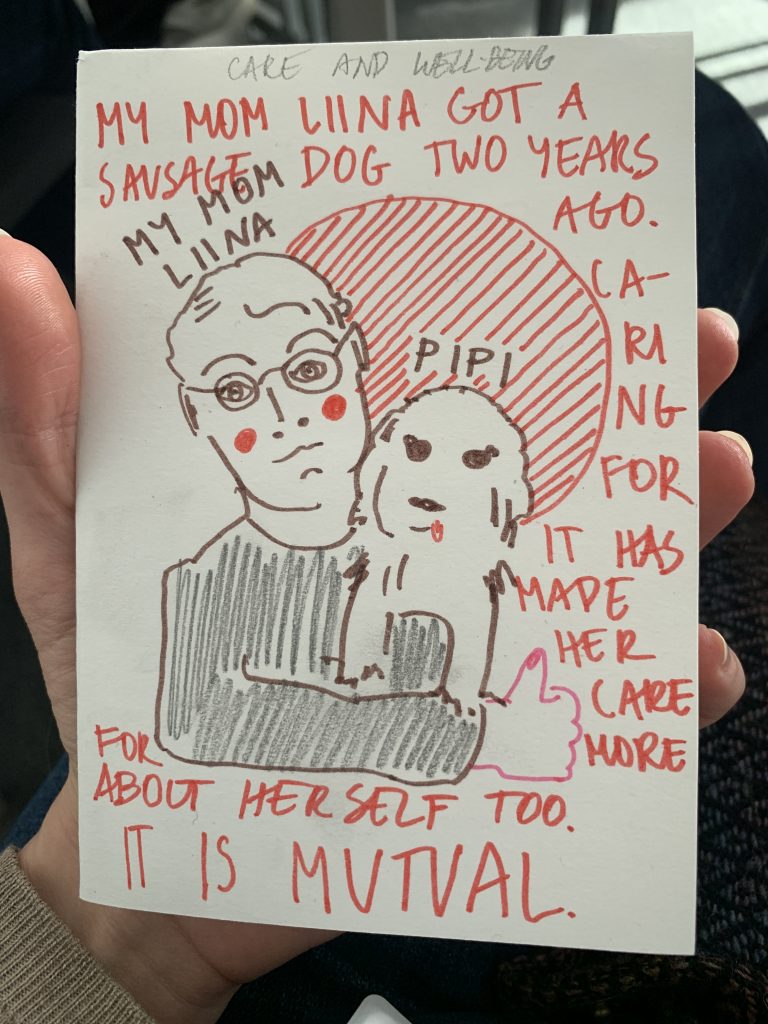 CARE AND WELL-BEING
MY MOM LIINA GOT A
SAUSAGE DOG TWO YEARS
AGO.
CA-
RI
NG
FOR
IT HAS
MADE
HER
CARE
MORE
FOR
ABOUT HERSELF TOO.
IT IS MUTUAL.
MY MOM
LIINA
PIPI